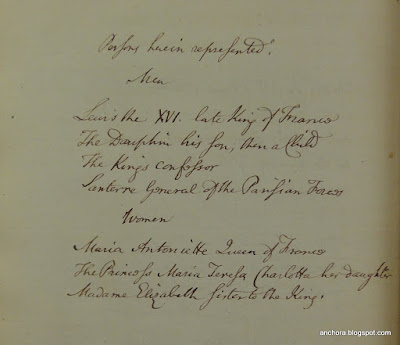 Persons herein represented.
Men
Lewis the XVI. late King of France
The Dauphin his Son, then a Child
The Kings Confessor
Santerre General of the Parisian Forces
Women
Maria Antoniette Queen of France
The Princess Maria Teresa Charlotta her daughter
Madame Elizabeth Sister to the King.
anchora.blogspot.com